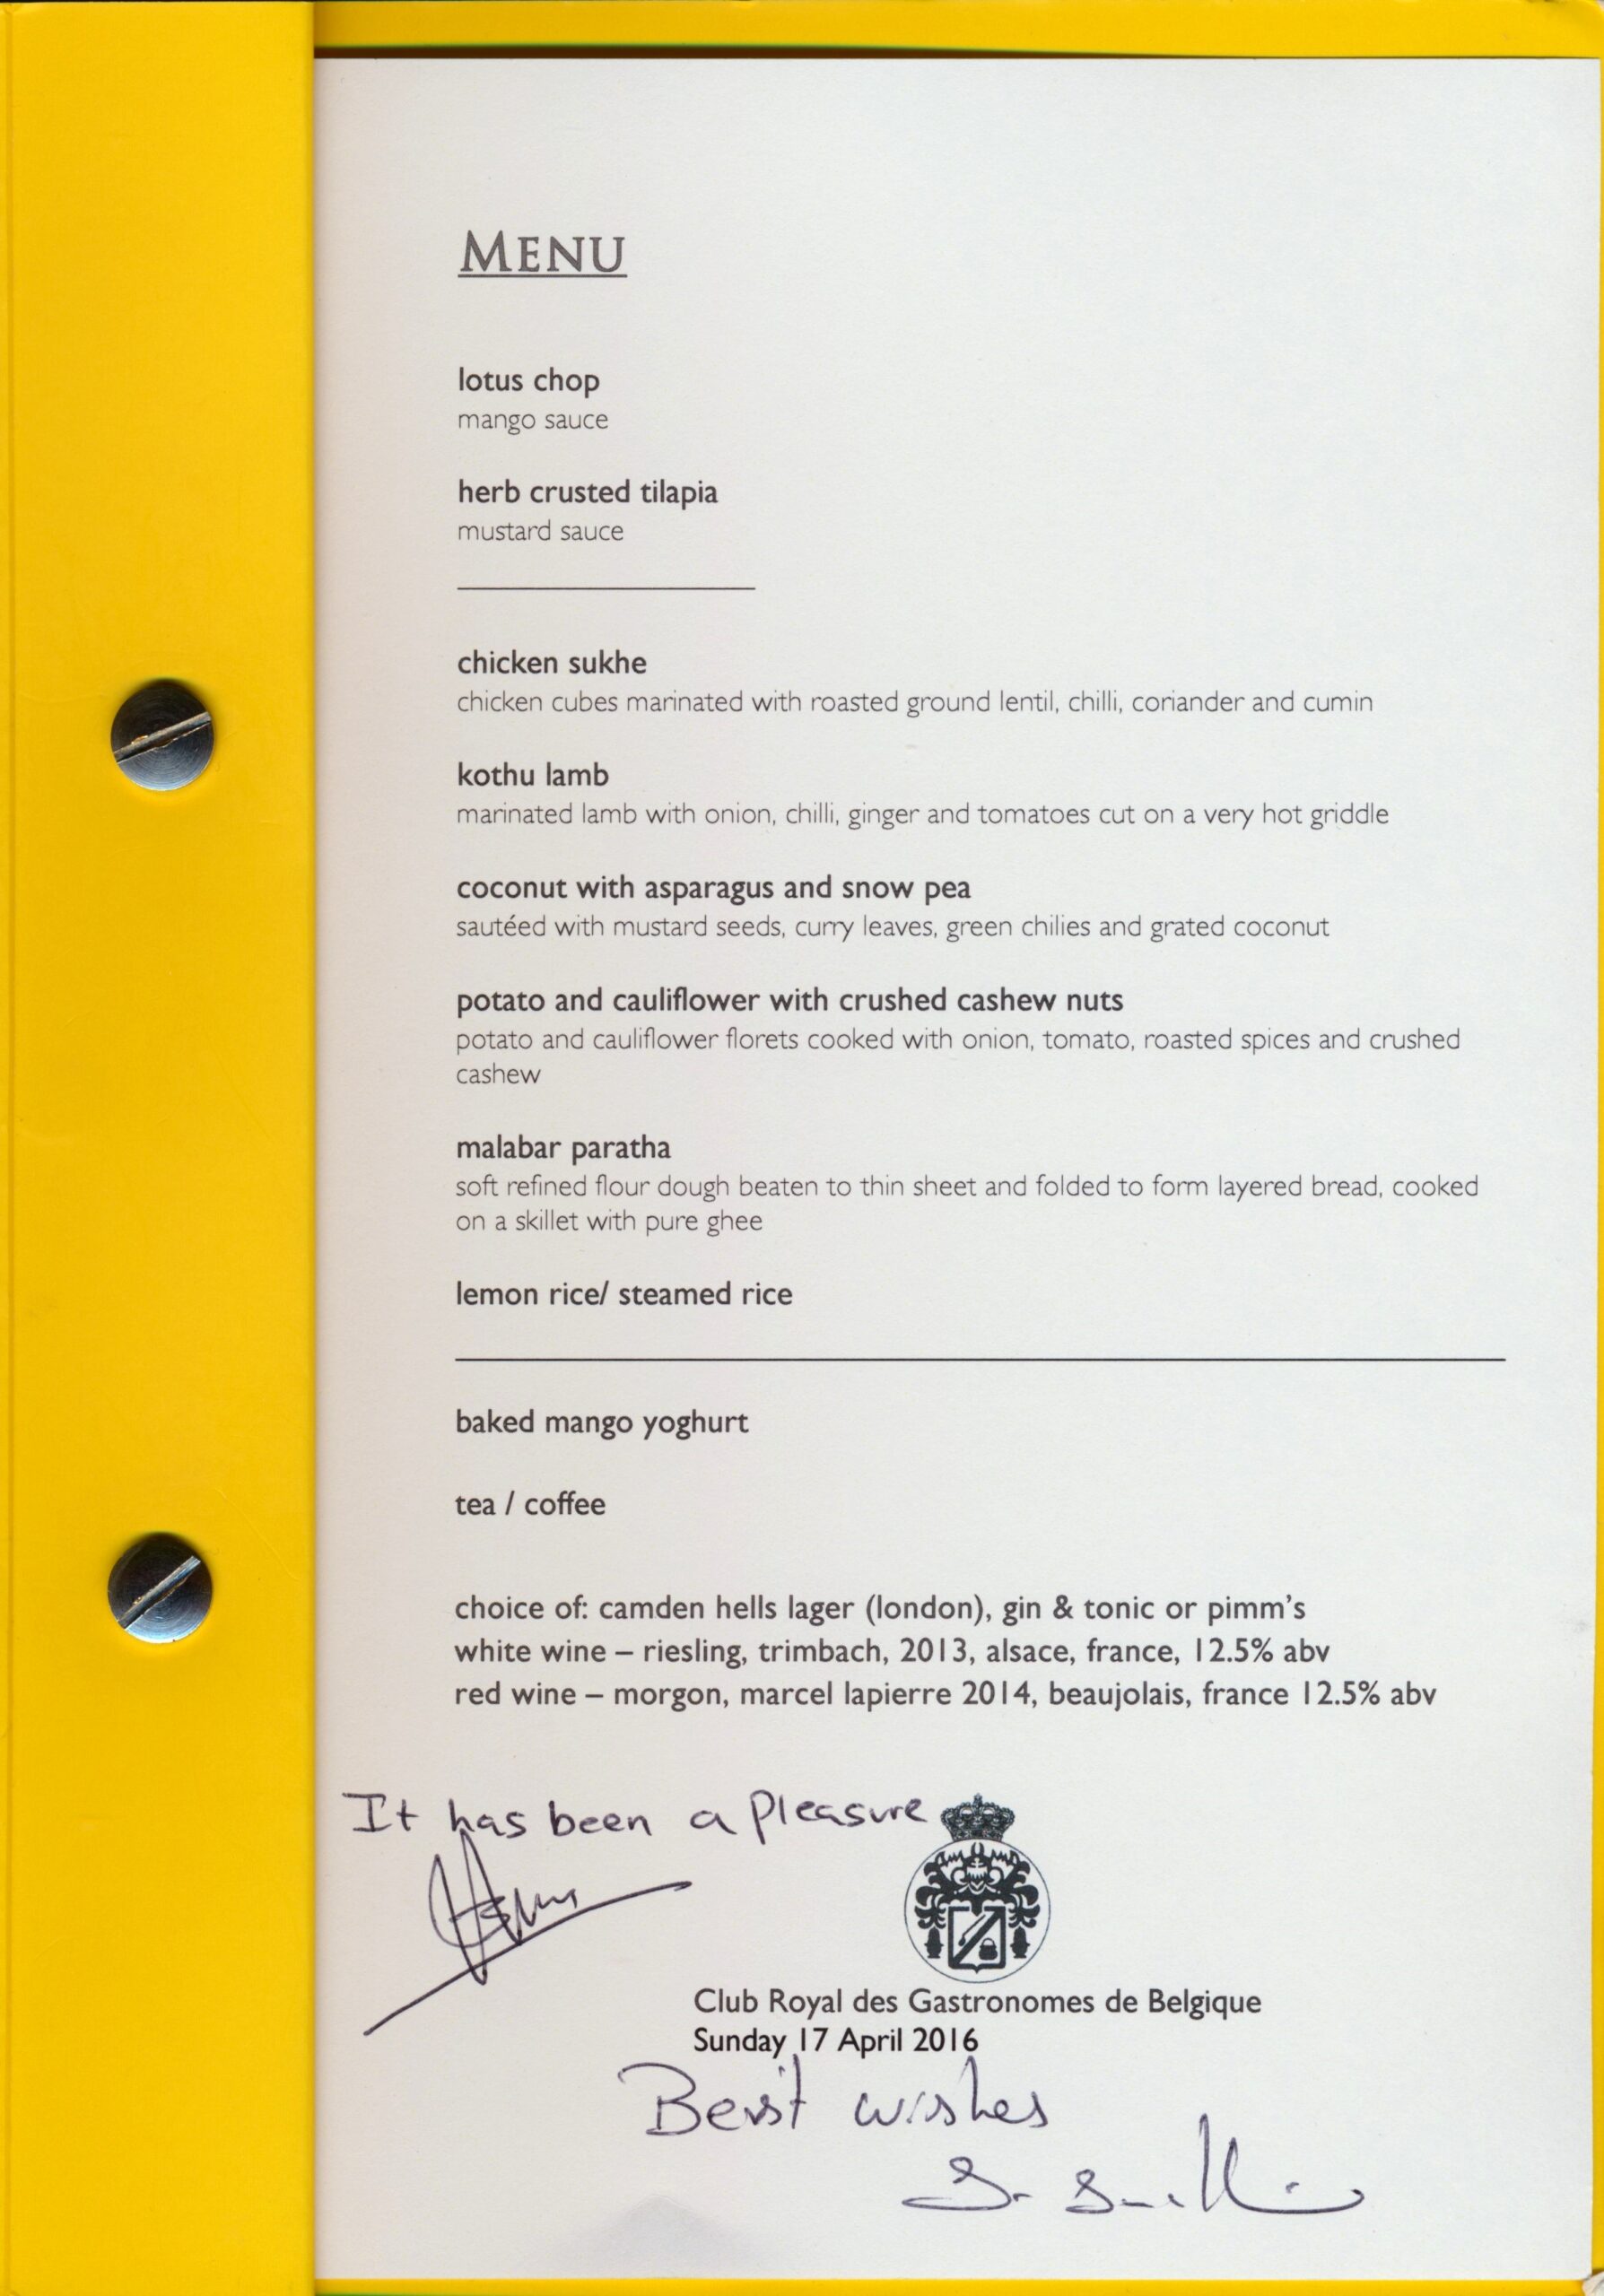 MENU
lotus chop
mango sauce
herb crusted tilapia
mustard sauce
chicken sukhe
chicken cubes marinated with roasted ground lentil, chilli, coriander and cumin
kothu lamb
marinated lamb with onion, chilli, ginger and tomatoes cut on a very hot griddle
coconut with asparagus and snow pea
sautéed with mustard seeds, curry leaves, green chilies and grated coconut
potato and cauliflower with crushed cashew nuts
potato and cauliflower florets cooked with onion, tomato, roasted spices and crushed
cashew
malabar paratha
soft refined flour dough beaten to thin sheet and folded to form layered bread, cooked
on a skillet with pure ghee
lemon rice/ steamed rice
baked mango yoghurt
tea / coffee
choice of: camden hells lager (london), gin & tonic or pimm's
white wine – riesling, trimbach, 2013, alsace, france, 12.5% abv
red wine – morgon, marcel lapierre 2014, beaujolais, france 12.5% abv
It has been a Pleasure
Club Royal des Gastronomes de Belgique
Sunday 17 April 2016
Best wishes